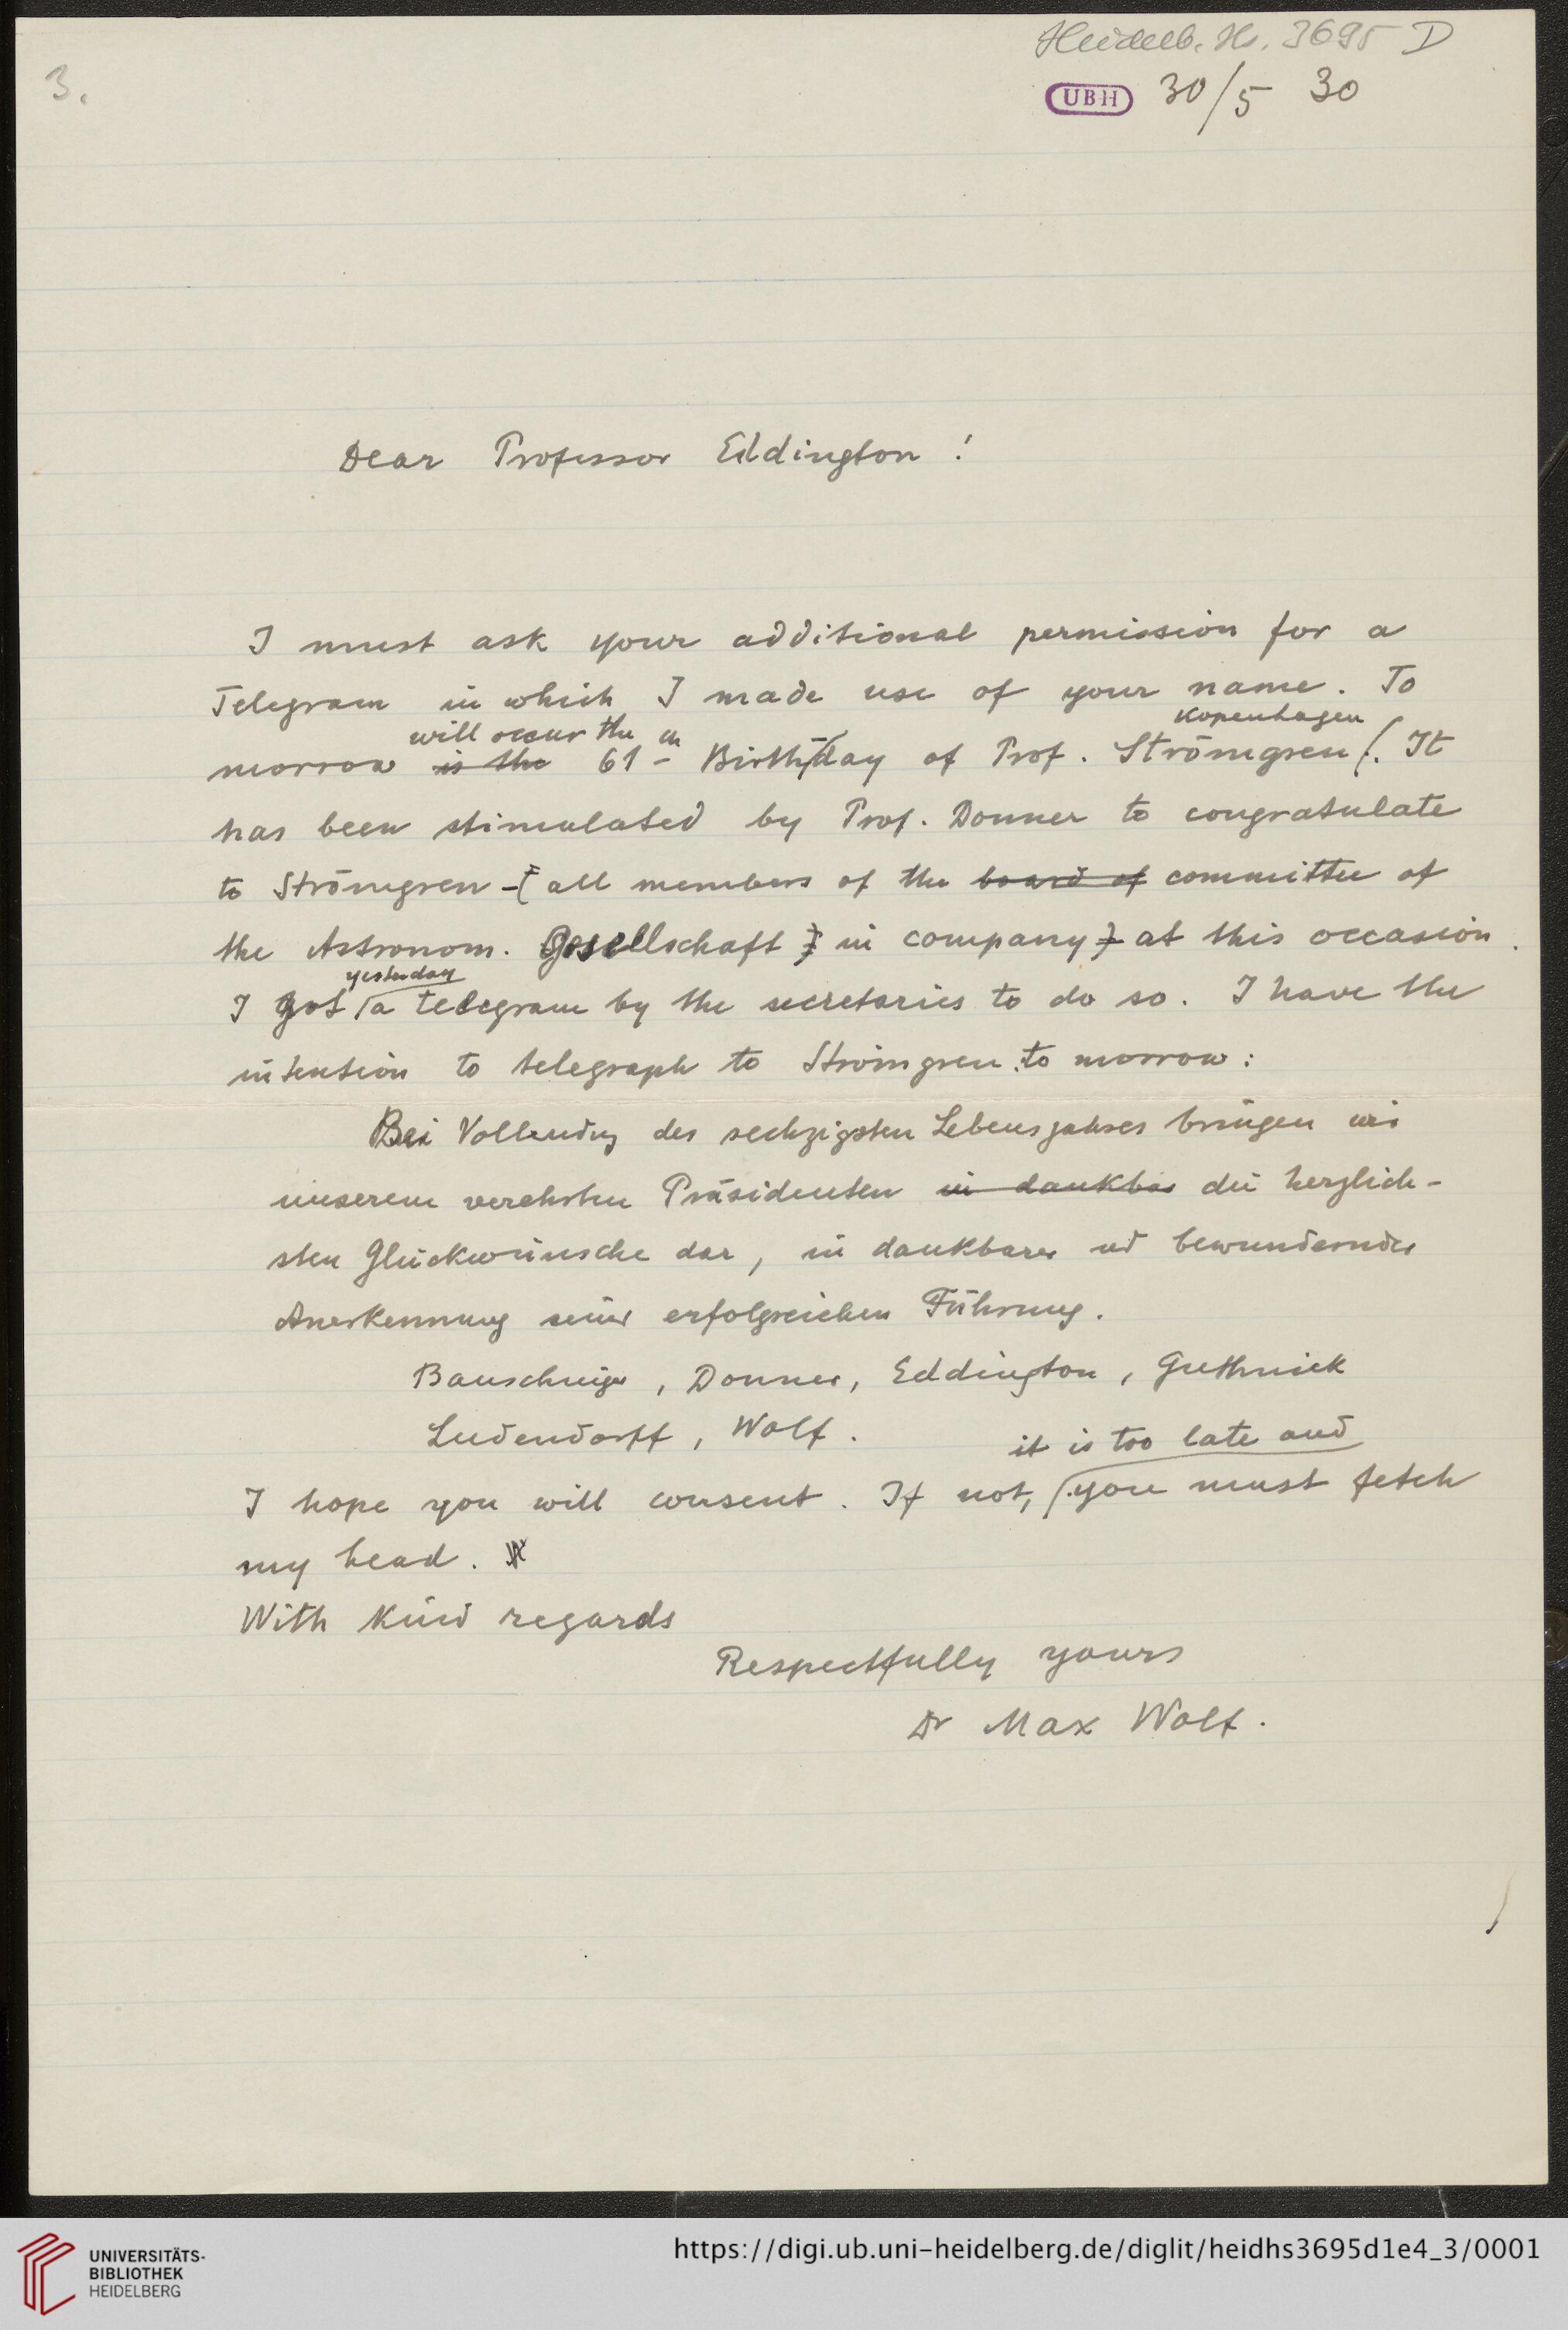 Heidelb. Hs. 3695 D
3.
UBH 30/5 30
Dear Professor Eddington !
I must ask your additional permission for a
Telegram in which I made use of your name. To
will occur the
Kopenhagen
morrow is the 61- Birthday of Prof. Strömgren. It
has been stimulated by Prof. Donner to congratulate
to Strömgren - ( all members of the board of committee of
the Astronom. Gesellschaft ) in company ) at this occasion.
yesterday
I got a telegram by the secretaries to do so. I have the
intention to telegraph to Strömgren to morrow :
Bei Vollendung des sechzigsten Lebensjahres bringen wir
unserem verehrten Präsidenten in dankbar die herzlich-
sten Glückwünsche dar, in dankbarer und bewundernder
Anerkennung seiner erfolgreichen Führung.
Bauschinger, Donner, Eddington, Guthnick
Ludendorff, Wolf.
it is too late and
I hope you will consent. If not, you must fetch
my head.
With kind regards
Respectfully yours
Dr Max Wolf.
UNIVERSITÄTS-
BIBLIOTHEK
HEIDELBERG
https://digi.ub.uni-heidelberg.de/diglit/heidhs3695d1e4_3/0001